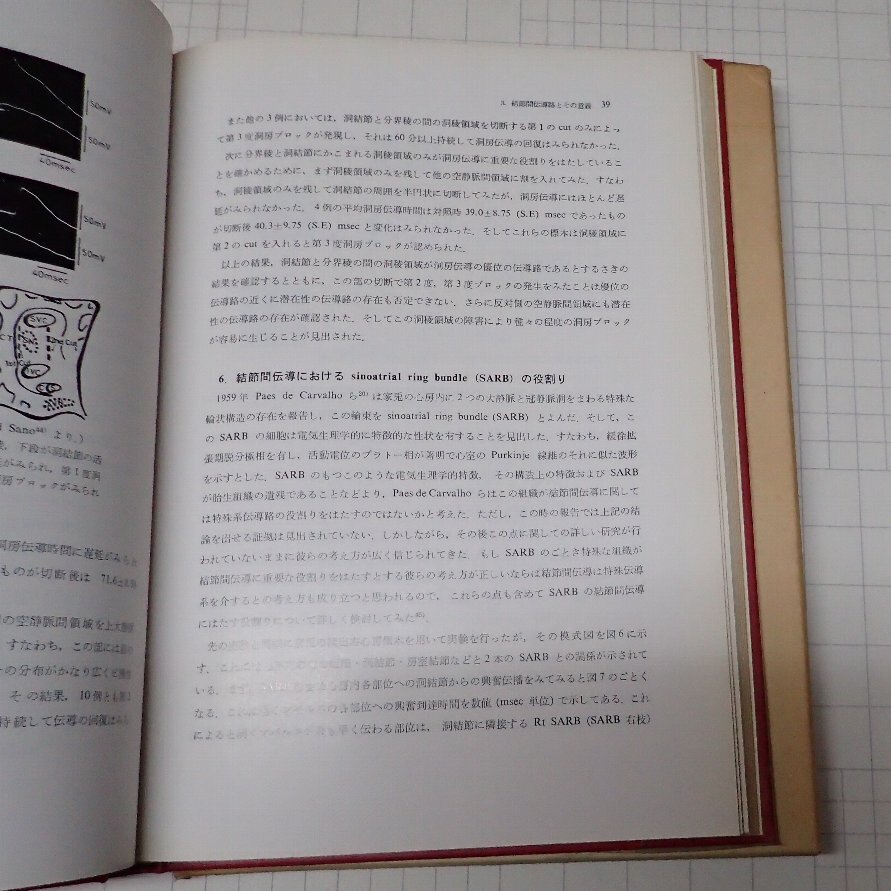 50mV
50mV
40msec
50mV
50mV
40msec
SVC
2nd Cut
1st Cut
Sano⁴⁴⁾ より.)
下段が洞結節の活
がみられ, 第1度洞
房ブロックがみられ
洞房伝導時間に遅延がみられ
ものが切断後は 71.6
の空静脈間領域を
すなわち, この部には
の分布がかなり広く
その結果, 10例とも第3
持続して伝導の回復はみら
3. 結節間伝導路とその意義 39
また他の3例においては, 洞結節と分界稜の間の洞稜領域を切断する第1の cut のみによっ
て第3度洞房ブロックが発現し, それは60分以上持続して洞房伝導の回復はみられなかった.
次に分界稜と洞結節にかこまれる洞稜領域のみが洞房伝導に重要な役割りをはたしているこ
とを確かめるために, まず洞稜領域のみを残して他の空静脈間領域に割を入れてみた. すなわ
ち, 洞稜領域のみを残して洞結節の周囲を半円状に切断してみたが, 洞房伝導にはほとんど遅
延がみられなかった. 4例の平均洞房伝導時間は対照時 39.0±8.75 (S.E) msec であったもの
が切断後 40.3±9.75 (S.E) msec と変化はみられなかった. そしてこれらの標本は洞稜領域に
第2の cut を入れると第3度洞房ブロックが認められた.
以上の結果, 洞結節と分界稜の間の洞稜領域が洞房伝導の優位の伝導路であるとするさきの
結果を確認するとともに, この部の切断で第2度, 第3度ブロックの発生をみたことは優位の
伝導路の近くに潜在性の伝導路の存在も否定できない. さらに反対側の空静脈間領域にも潜在
性の伝導路の存在が確認された. そしてこの洞稜領域の障害により種々の程度の洞房ブロック
が容易に生じることが見出された.
6. 結節間伝導における sinoatrial ring bundle (SARB) の役割り
1959年 Paes de Carvalho ら²⁰⁾は家兎の心房内に2つの大静脈と冠静脈洞をまわる特殊な
輪状構造の存在を報告し, この線束を sinoatrial ring bundle (SARB) とよんだ. そして, こ
の SARB の細胞は電気生理学的に特徴的な性状を有することを見出した. すなわち, 緩徐拡
張期脱分極相を有し, 活動電位のプラトー相が著明で心室の Purkinje 線維のそれに似た波形
を示すとした. SARB のもつこのような電気生理学的特徴, その構造上の特徴および SARB
が胎生組織の遺残であることなどより, Paes de Carvalho らはこの組織が結節間伝導に関して
は特殊系伝導路の役割りをはたすのではないかと考えた. ただし, この時の報告では上記の結
論を出せる証拠は見出されていない. しかしながら, その後この点に関しての詳しい研究が行
われていないままに彼らの考え方が広く信じられてきた. もし SARB のごとき特殊な組織が
結節間伝導に重要な役割りをはたすとする彼らの考え方が正しいならば結節間伝導は特殊伝導
系を介するとの考え方も成り立つと思われるので, これらの点も含めて SARB の結節間伝導
にはたす役割りについて詳しく検討してみた⁴⁵⁾.
先の を用いて実験を行ったが, その模式図を図6に示
す. これには ・洞結節・房室結節などと2本の SARB との関係が示されて
いる. まず, 房内各部位への洞結節からの興奮伝播をみてみると図7のごとく
なる. の各部位への興奮到達時間を数値 (msec 単位) で示してある. これ
によると 早く伝わる部位は, 洞結節に隣接する Rt SARB (SARB 右枝)